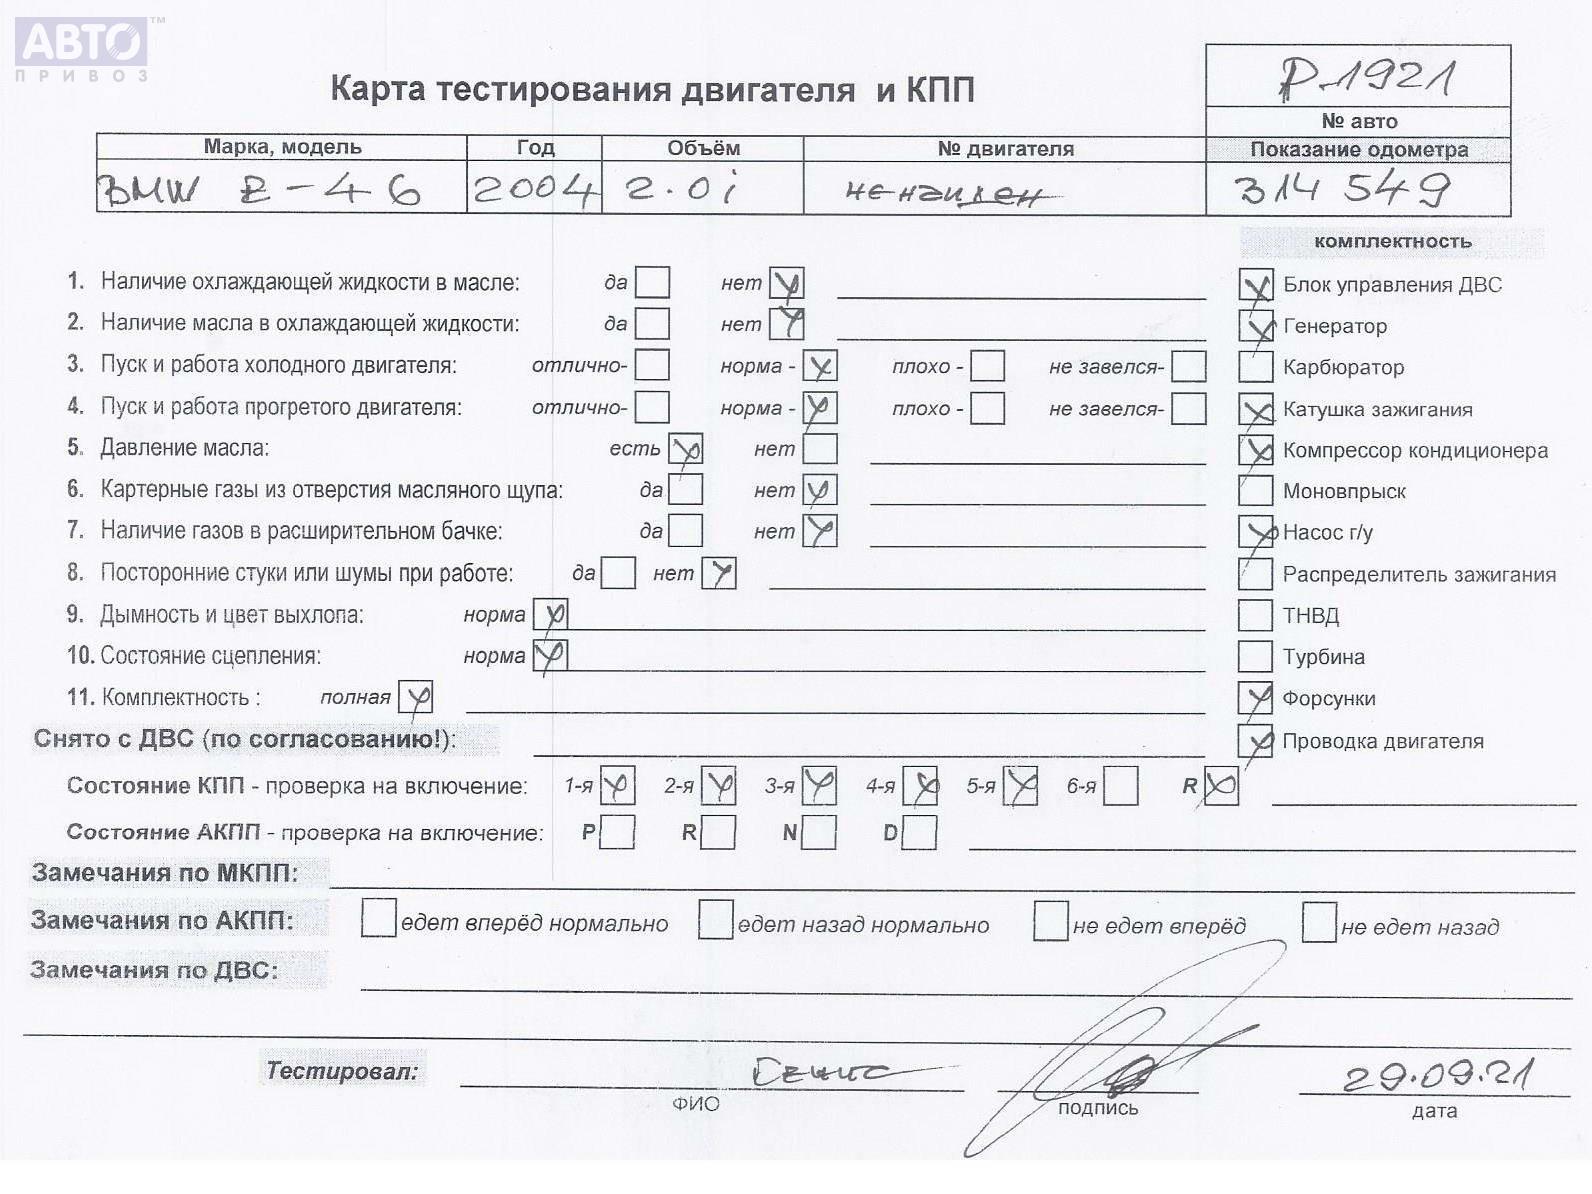 АВТО ™
ПРИВОЗ
Карта тестирования двигателя и КПП
P-1921
№ авто
Марка, модель Год Объём № двигателя Показание одометра
BMW E-46 2004 2.0i не найден 314 549
комплектность
1. Наличие охлаждающей жидкости в масле: да нет
Блок управления ДВС
2. Наличие масла в охлаждающей жидкости: да нет
Генератор
3. Пуск и работа холодного двигателя: отлично- норма - плохо - не завелся-
Карбюратор
4. Пуск и работа прогретого двигателя: отлично- норма - плохо - не завелся-
Катушка зажигания
5. Давление масла: есть нет
Компрессор кондиционера
6. Картерные газы из отверстия масляного щупа: да нет
Моновпрыск
7. Наличие газов в расширительном бачке: да нет
Насос г/у
8. Посторонние стуки или шумы при работе: да нет
Распределитель зажигания
9. Дымность и цвет выхлопа: норма
ТНВД
10. Состояние сцепления: норма
Турбина
11. Комплектность : полная
Форсунки
Снято с ДВС (по согласованию!):
Проводка двигателя
Состояние КПП - проверка на включение: 1-я 2-я 3-я 4-я 5-я 6-я R
Состояние АКПП - проверка на включение: P R N D
Замечания по МКПП:
Замечания по АКПП: едет вперёд нормально едет назад нормально не едет вперёд не едет назад
Замечания по ДВС:
Тестировал: Денис 29.09.21
ФИО подпись дата